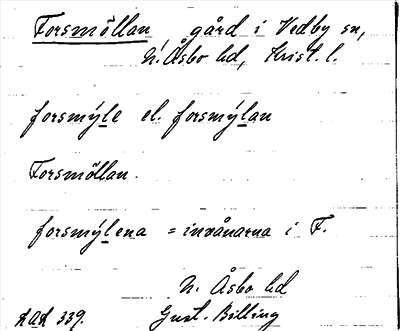 Forsmöllan, gård i Vedby sn,
N. Åsbo hd, Krist. l.
forsmýle el. forsmýlan
Forsmöllan.
forsmýlena = invånarna i F.
N. Åsbo hd
Gust. Billing